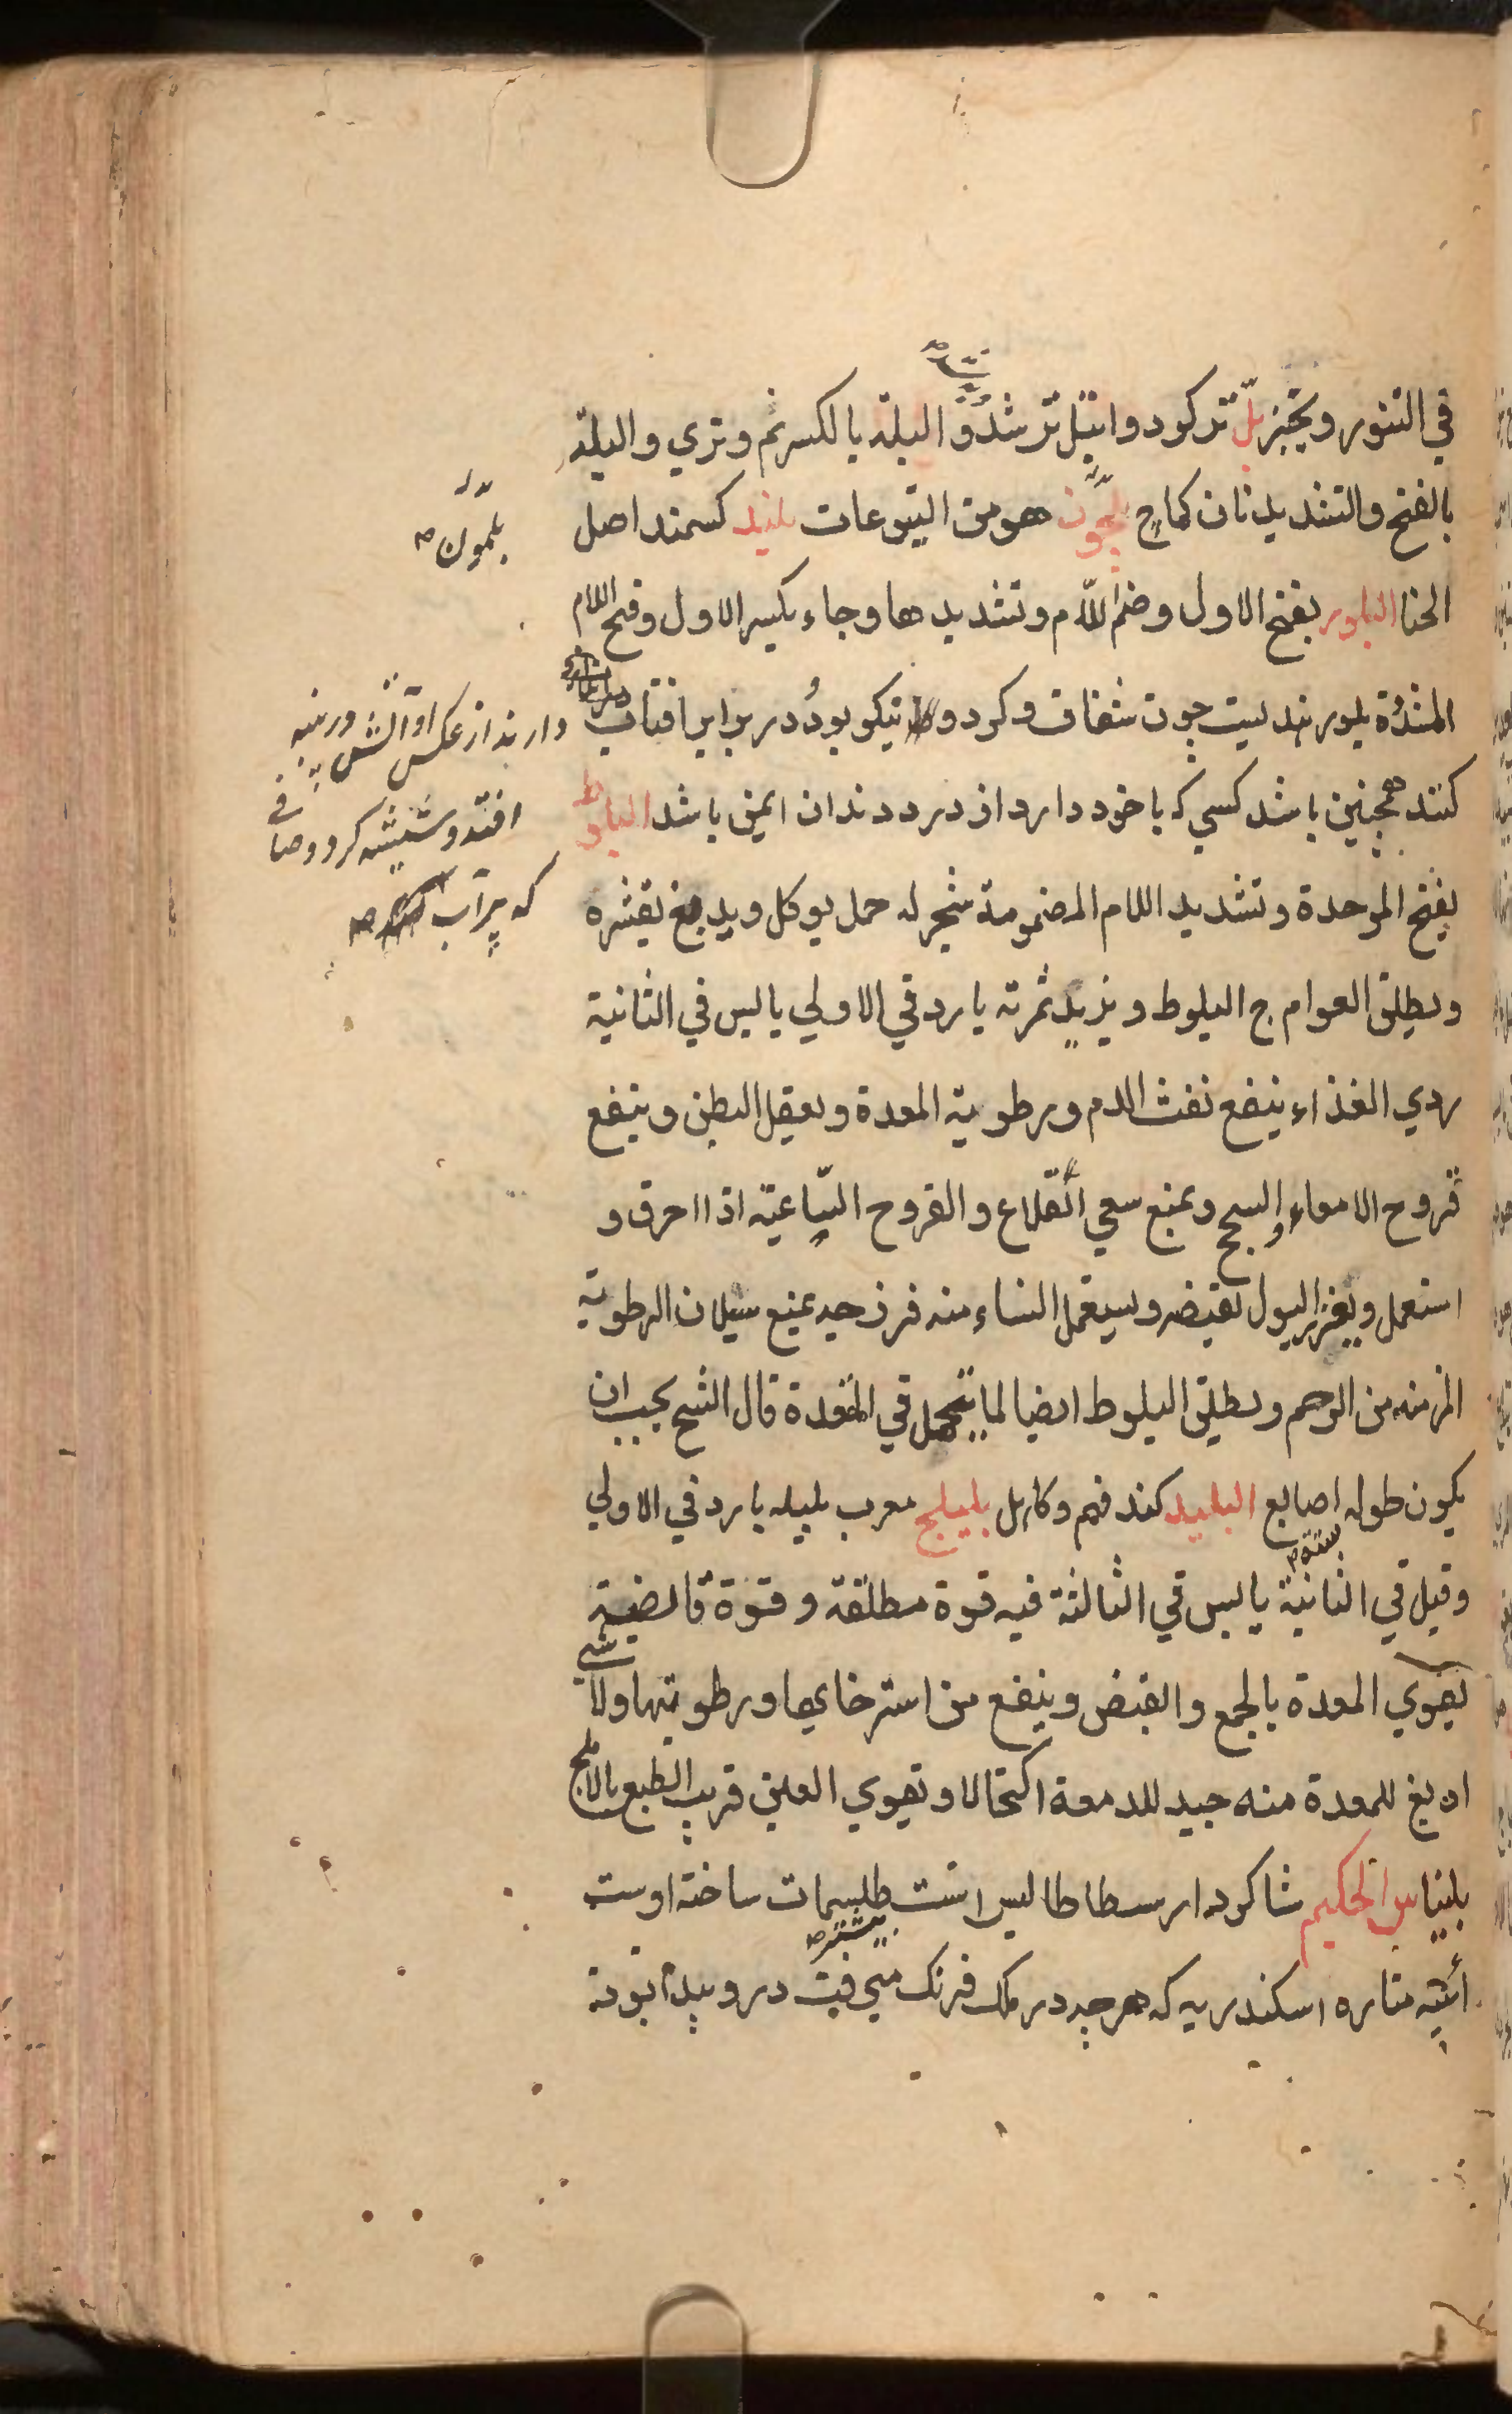 في التنور ويخبز بلّ تر كرد وابتل تر شد و البلة بالكسر نم وتري والبلة
بالفتح والتشديد نان كماج بلجون هو من اليتوعات بلند كسمند اصل
الحنا البلور بفتح الاول وضم اللام وتشديدها وجاء بكسر الاول وفتح اللام
المشددة بلور چون شفاف و كرد و نيكو بود در برابر افتاب
كنند همچنين باشد كسي كه با خود دارد از درد دندان ايمن باشد البلوط
بفتح الموحدة وتشديد اللام المضمومة شجر له حمل يوكل ويدبغ بقشره
ويطلق العوام ج البلوط ويزيد ثمرته بارد في الاولي يابس في الثانية
ردي الغذاء ينفع نفث الدم ورطوبة المعدة ويعقل البطن وينفع
قروح الامعاء والسحج ويمنع سعي القلاع والقروح الساعية اذا احرق و
استعمل ويغزر البول بقبضه ويستعمل النساء منه فرزجه يمنع سيلان الرطوبة
المزمنه من الرحم ويطلق البلوط ايضا لما يتحمل في المقعدة قال الشيخ يجب ان
يكون طوله اصابع البليد كند فهم وكاهل بليلج معرب بليله بارد في الاولي
ستة
وقيل في الثانية يابس في الثالثة فيه قوة مطلقة وقوة قابضة
يقوي المعدة بالجمع والقبض وينفع من استرخايها ورطوبتها ولا شي
ادبغ للمعدة منه جيد للدمعة اكتحالا وتقوي العين قريب الطبع بالاملج
بليناس الحكيم شاكرد ارسطاطاليس است طلسمات ساخته اوست
بيشتر
آئينه مناره اسكندريه كه هرچه در ملك فرنگ ميرفت درو پيدا بود
بلمون
دارند از عكس او آتش در پنبه
افتد و شيشه كرد و صافي
كه پرآب